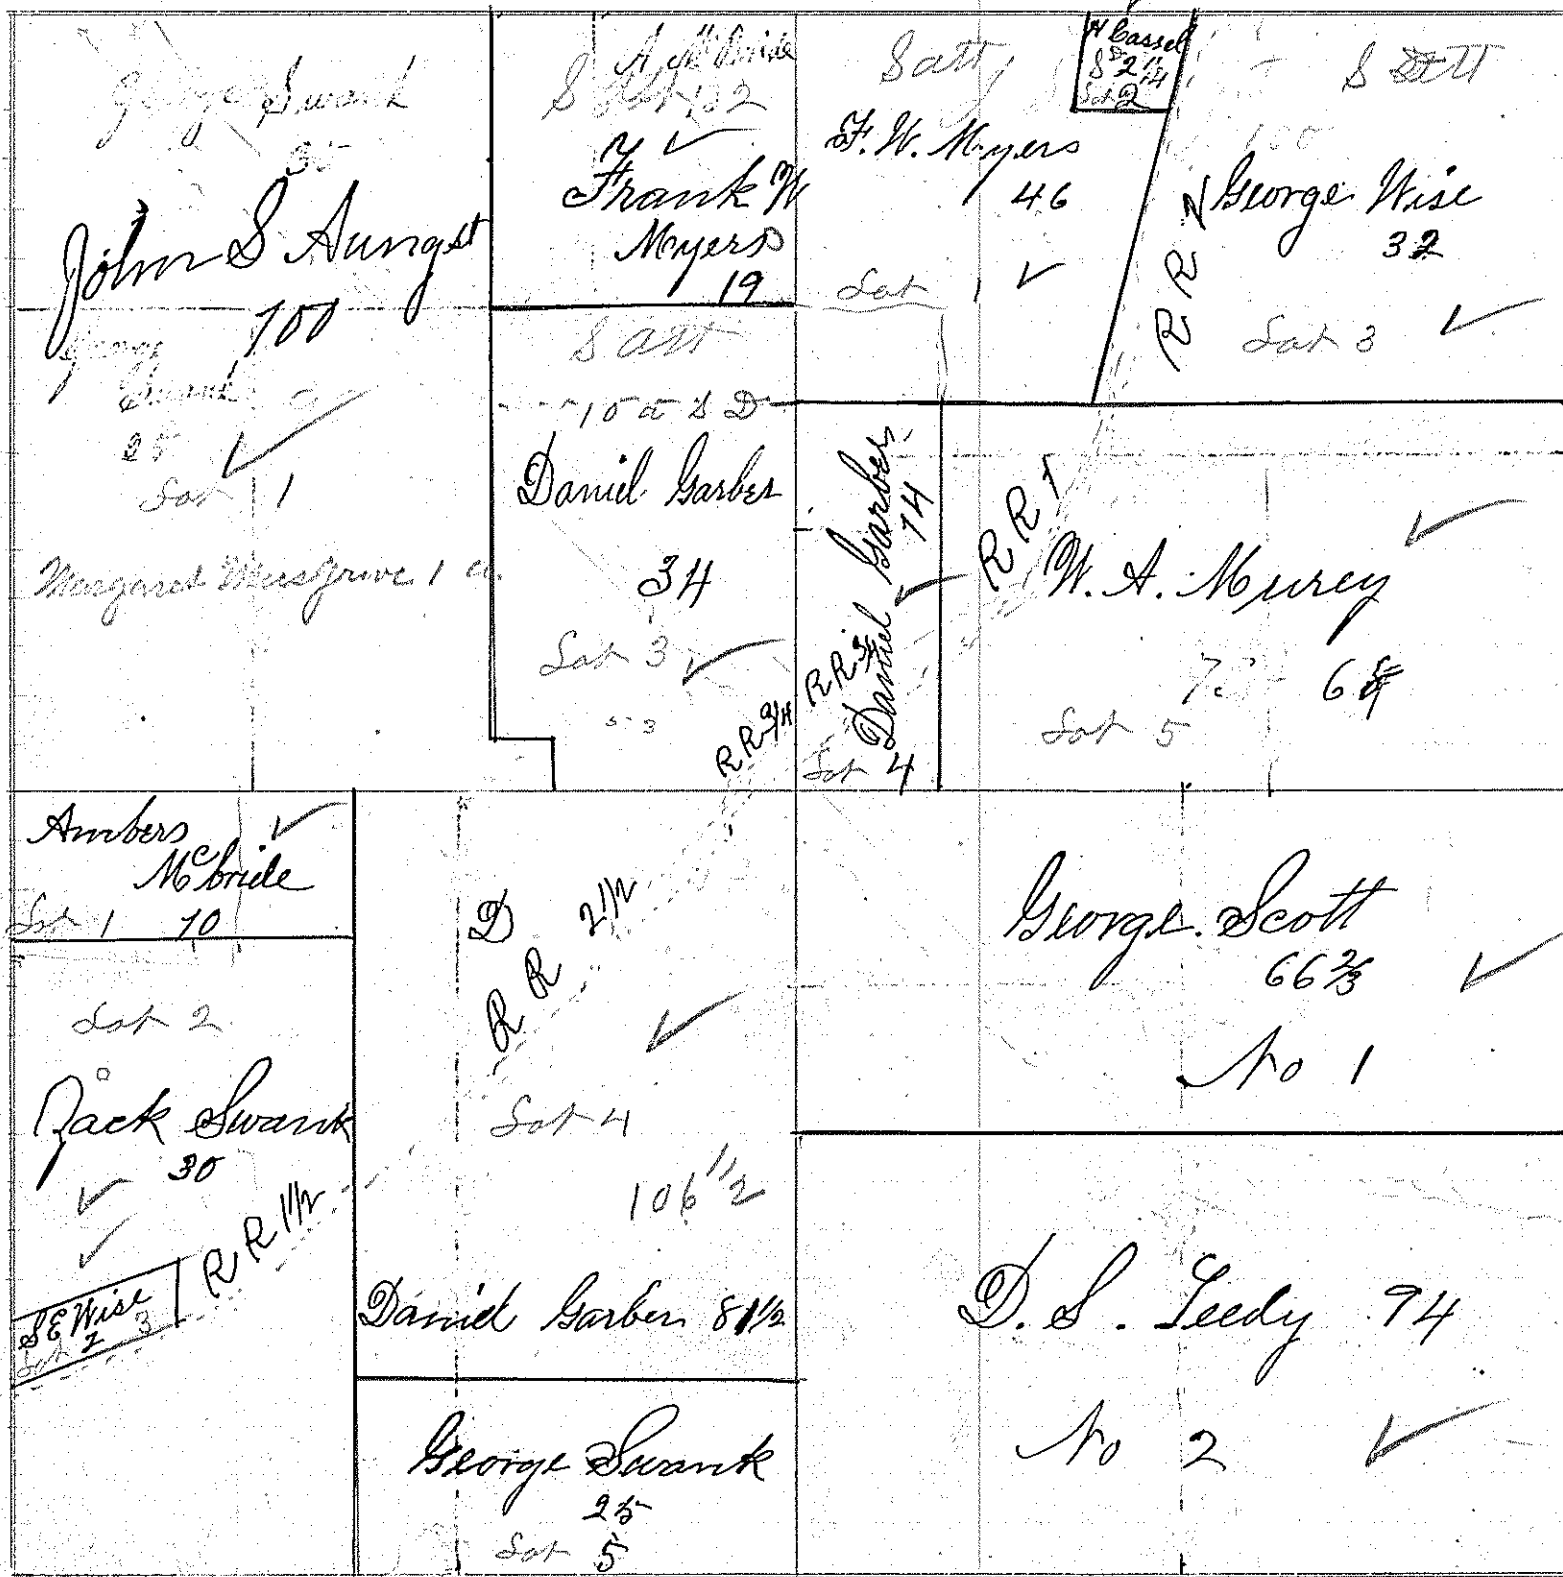 George Swank
John S Aungst
100
George
Swank
25
Lot 1
Margaret Musgrove 1 a.
A McBride
Frank W
Myers
19
S att
10 a S D
Daniel Garber
34
Lot 3
RR 3/4
S att
F. W. Myers
46
Lot 1
H Cassel
Lot 2
S
100
George Wise
32
R R
Lot 3
Daniel Garber
14
RR
Lot 4
R R 1
W. A. Murey
Lot 5
Ambers
McBride
Lot 1 10
Lot 2
Zack Swank
30
R R 1 1/2
S E Wise
2 3
Lot
D
R R 2 1/2
Lot 4
106 1/2
Daniel Garber 81 1/2
George Swank
25
Lot 5
George Scott
66 2/3
No 1
D. S. Leedy 94
No 2